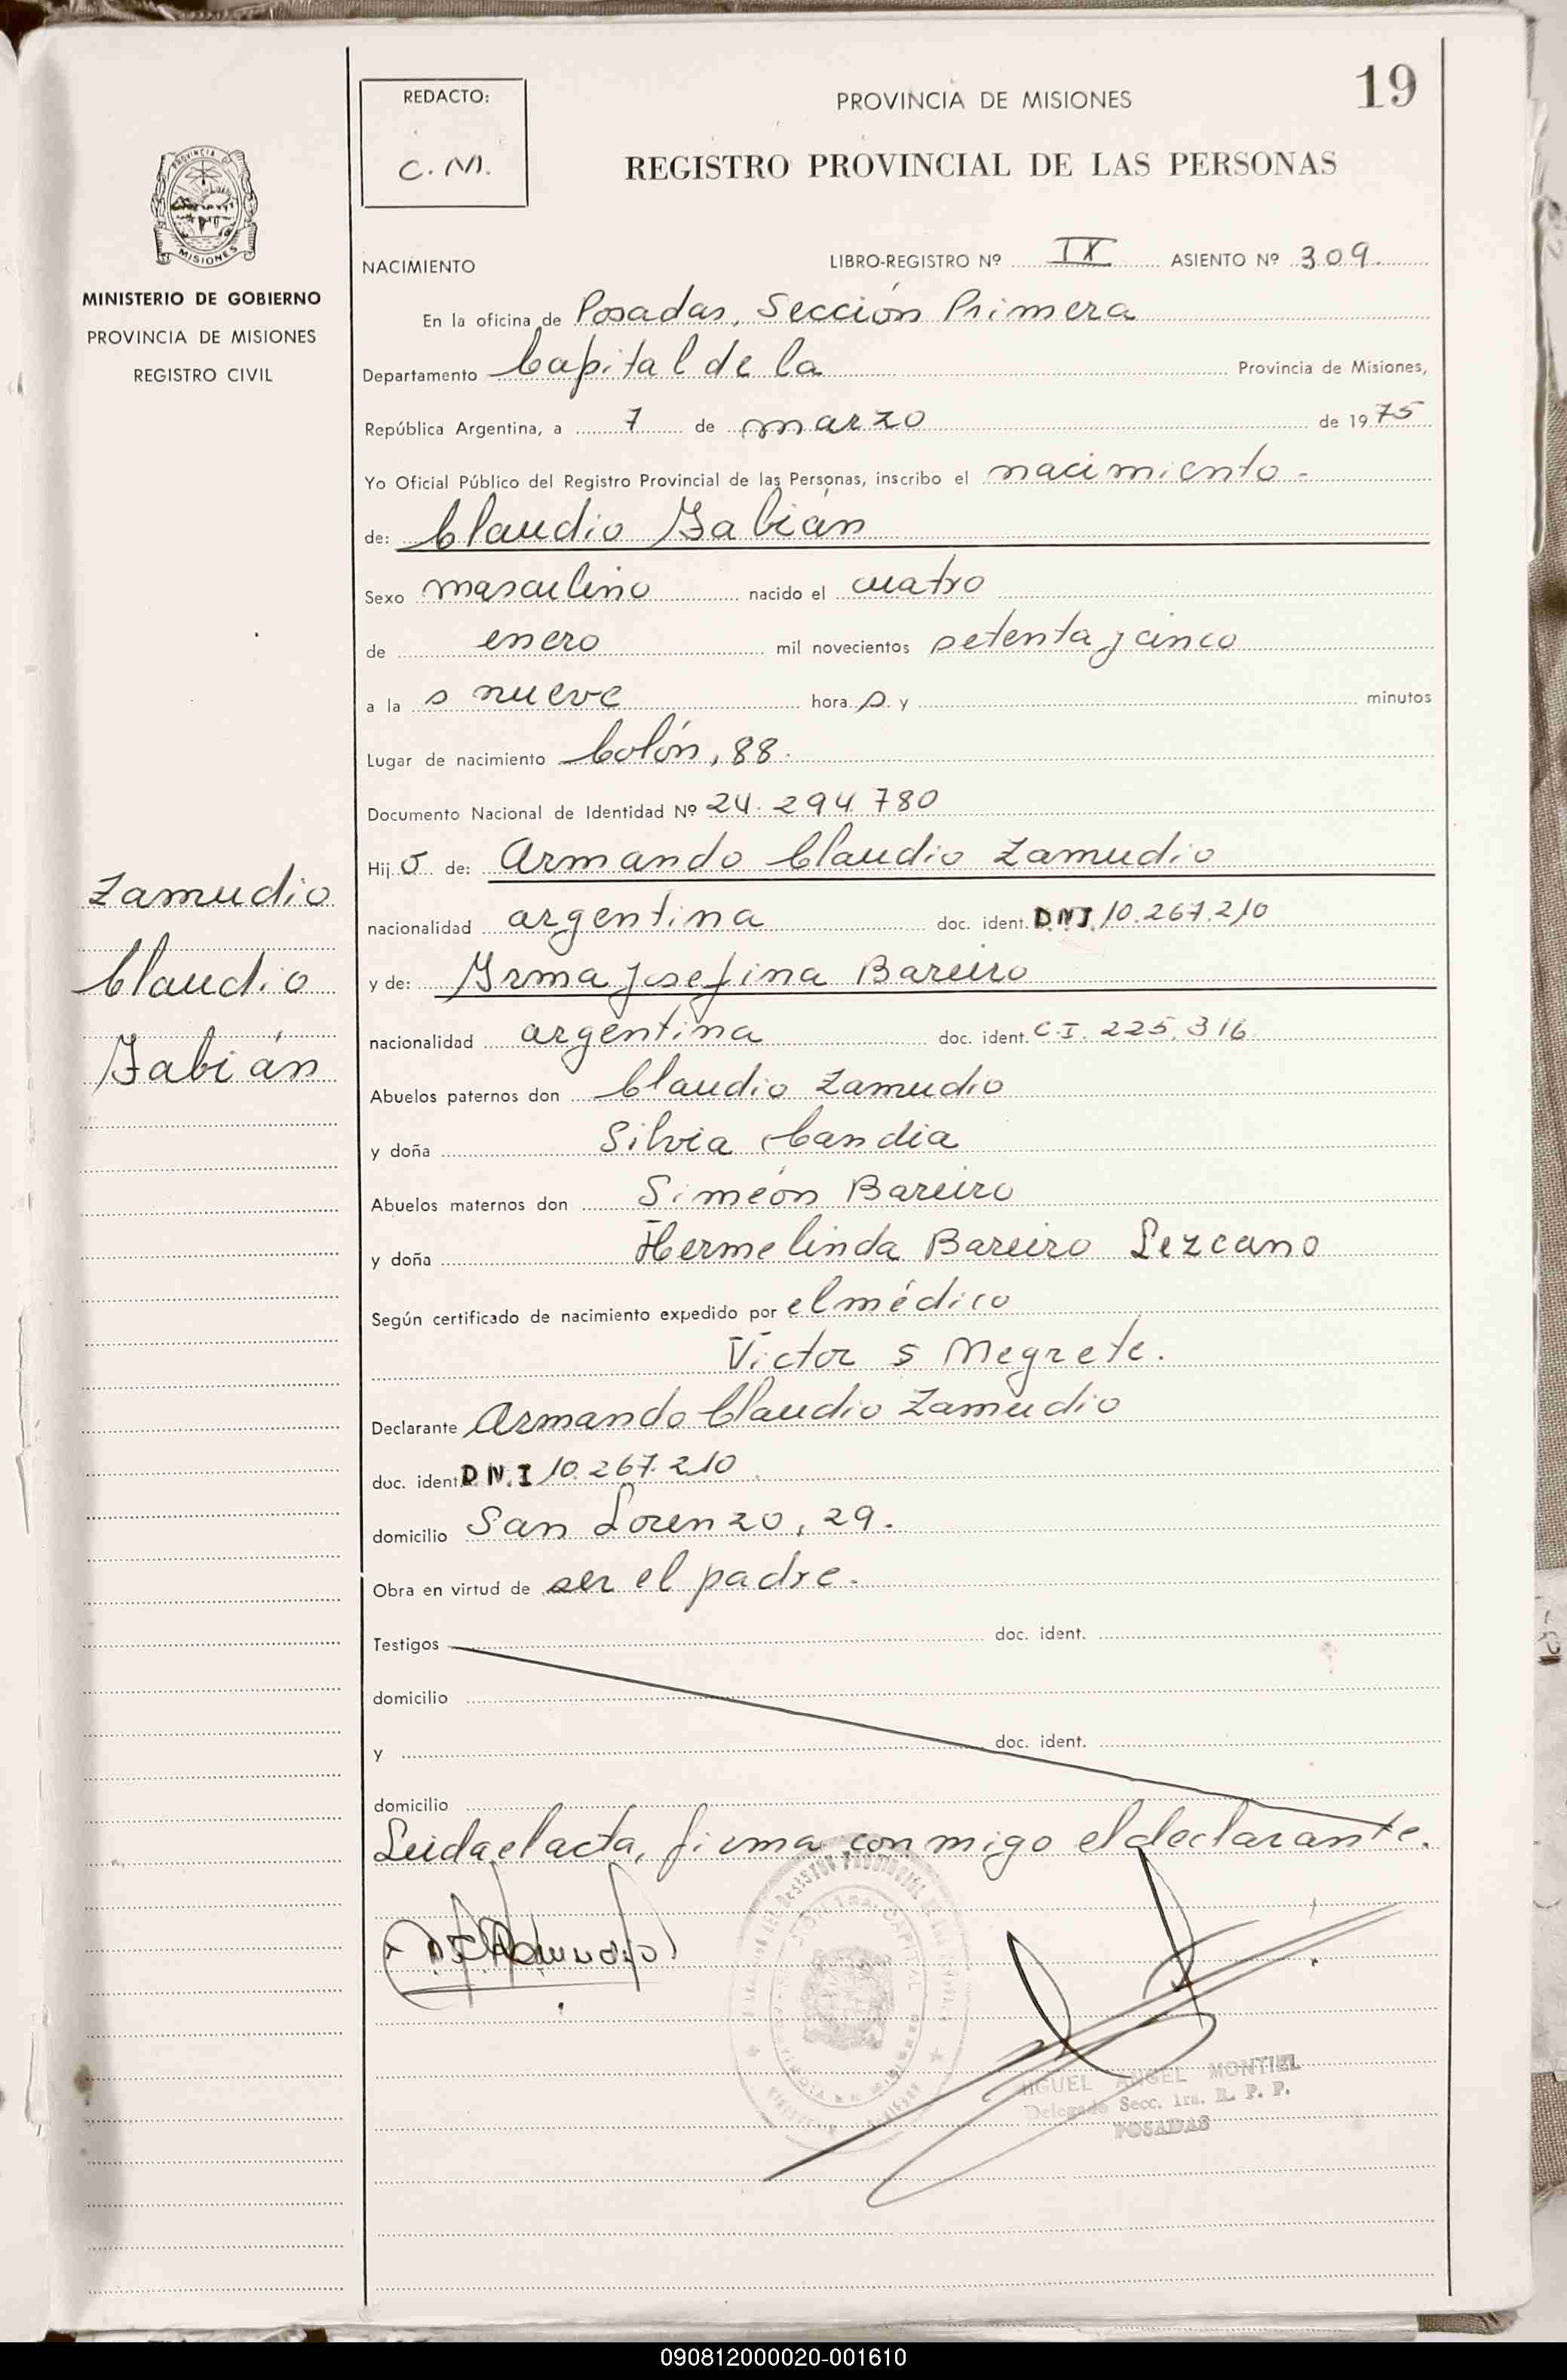 19
REDACTO:
C.M.
PROVINCIA DE MISIONES
REGISTRO PROVINCIAL DE LAS PERSONAS
PROVINCIA DE
MISIONES
MINISTERIO DE GOBIERNO
PROVINCIA DE MISIONES
REGISTRO CIVIL
NACIMIENTO
LIBRO-REGISTRO Nº IX ASIENTO Nº 309.
En la oficina de Posadas, Sección Primera
Departamento Capital de la Provincia de Misiones,
República Argentina, a 7 de marzo de 1975
Yo Oficial Público del Registro Provincial de las Personas, inscribo el nacimiento -
de: Claudio Fabián
Sexo masculino nacido el cuatro
de enero mil novecientos setenta y cinco
a la s nueve hora s y minutos
Lugar de nacimiento Colón, 88.
Documento Nacional de Identidad Nº 24.294.780
Hij o de: Armando Claudio Zamudio
nacionalidad argentina doc. ident. D.N.I. 10.267.210
y de: Irma Josefina Bareiro
nacionalidad argentina doc. ident. C.I. 225.316
Abuelos paternos don Claudio Zamudio
y doña Silvia Candia
Abuelos maternos don Simeón Bareiro
y doña Hermelinda Bareiro Lezcano
Según certificado de nacimiento expedido por el médico
Victor S Negrete.
Declarante Armando Claudio Zamudio
doc. ident. D.N.I 10.267.210
domicilio San Lorenzo, 29.
Obra en virtud de ser el padre.
Testigos doc. ident.
domicilio
y doc. ident.
domicilio
Leida el acta, firma conmigo el declarante.
Zamudio
Claudio
Fabián
MIGUEL ANGEL MONTIEL
Delegado Secc. 1ra. R. P. P.
POSADAS
090812000020-001610